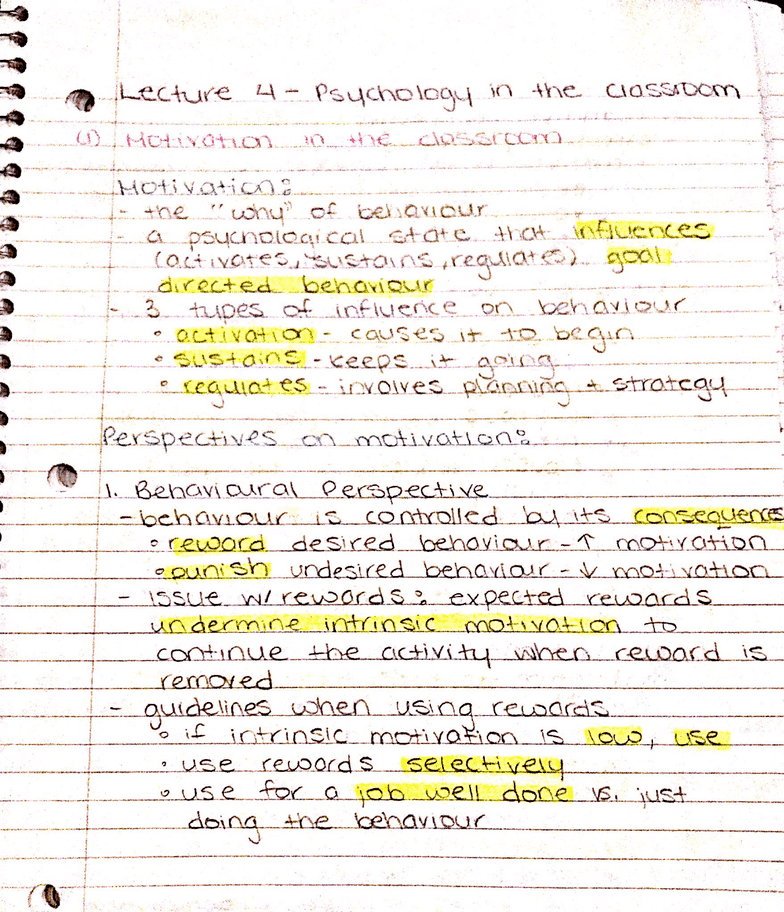 Lecture 4 - Psychology in the classroom
(1) Motivation in the classroom
Motivation:
- the "why" of behaviour
- a psychological state that influences
(activates, sustains, regulates) goal
directed behaviour
- 3 types of influence on behaviour
• activation - causes it to begin
• sustains - keeps it going
• regulates - involves planning + strategy
Perspectives on motivation:
1. Behavioural Perspective
- behaviour is controlled by its consequences
• reward desired behaviour - ↑ motivation
• punish undesired behaviour - ↓ motivation
- issue w/ rewards: expected rewards
undermine intrinsic motivation to
continue the activity when reward is
removed
- guidelines when using rewards
• if intrinsic motivation is low, use
• use rewards selectively
• use for a job well done vs. just
doing the behaviour